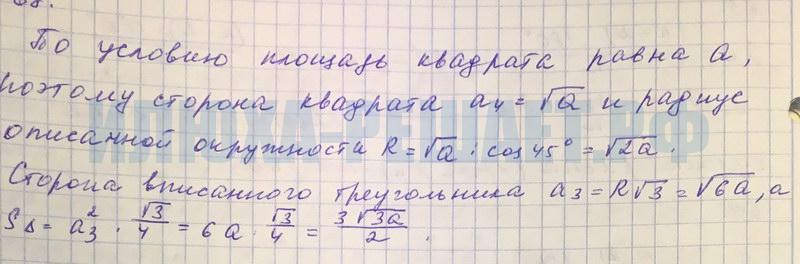 По условию площадь квадрата равна a,
поэтому сторона квадрата a₄ = √a и радиус
описанной окружности R = √a : cos 45° = √2a.
Сторона вписанного треугольника a₃ = R√3 = √6a, а
S△ = a₃² · √3/4 = 6a · √3/4 = 3√3a/2.
ИЛЮХА-РЕШАЕТ.РФ